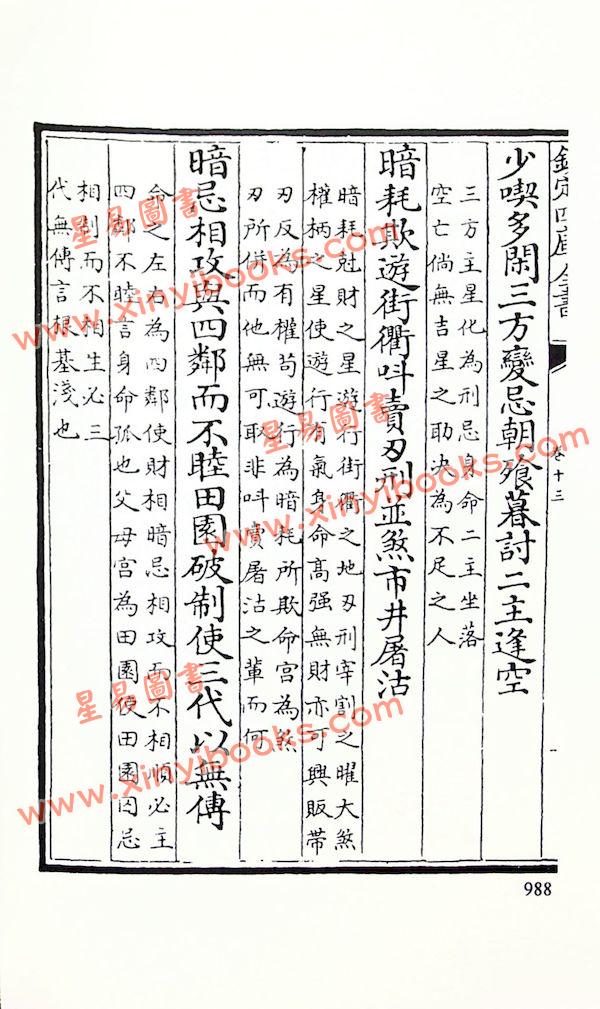 欽定四庫全書
卷十三
少喫多閑三方變忌朝飱暮討二主逢空
三方主星化為刑忌身命二主坐落
空亡倘無吉星之助决為不足之人
暗耗欺遊街衢呌賣刃刑並煞市井屠沽
暗耗尅財之星遊行街衢之地刃刑宰割之曜大煞
權柄之星使遊行有氣身命高强無財亦可興販帶
刃反為有權茍遊行為暗耗所欺命宮為煞
刃所併而他無可取非呌賣屠沽之輩而何
暗忌相攻與四鄰而不睦田園破制使三代以無傳
命之左右為四鄰使財相暗忌相攻而不相順必主
四鄰不睦言身命孤也父母宮為田園使田園囚忌
相制而不相生必三
代無傳言根基淺也
988
星易圖書
www.xinyibooks.com
星易圖書
www.xinyibooks.com
星易圖書
www.xinyibooks.com